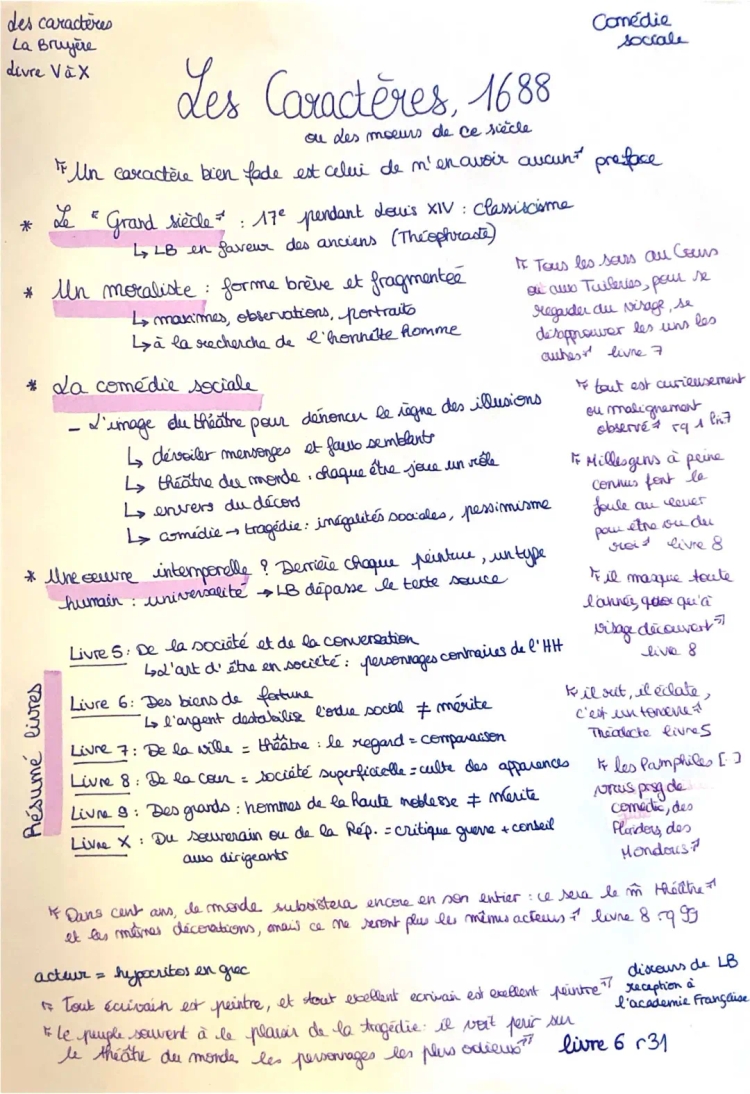 Les caractères
La Bruyère
Livre V à X
Comédie
sociale
Les Caractères, 1688
ou les moeurs de ce siècle
" Un caractère bien fade est celui de m'en avoir aucun " preface
* Le " Grand siècle " : 17e pendant Louis XIV : classiscisme
↳ LB en faveur des anciens (Théophraste)
* Un moraliste : forme brève et fragmentée
↳ maximes, observations, portraits
↳ à la recherche de l'honnête homme
" Tous les soirs au Cours
ou aux Tuileries, pour se
regarder du visage, se
désapprouver les uns les
autres " livre 7
* La comédie sociale
- L'image du théâtre pour dénoncer le règne des illusions
↳ dévoiler mensonges et faux semblants
↳ théâtre du monde, chaque être joue un rôle
↳ envers du décors
↳ comédie → tragédie : inégalités sociales, pessimisme
" tout est curieusement
ou malignement
observé " rq 1 ln7
" Milles gens à peine
connus font la
foule au lever
pour être vu du
roi " livre 8
* Une oeuvre intemporelle ? Derrière chaque peinture, un type
humain : universalité → LB dépasse le texte source
" il masque toute
l'année, quoi qu'à
visage découvert "
livre 8
Résumé livres
Livre 5 : De la société et de la conversation
↳ L'art d'être en société : personnages contraires de l'HH
Livre 6 : Des biens de fortune
↳ l'argent destabilise l'ordre social ≠ mérite
Livre 7 : De la ville = théâtre : le regard = comparaison
Livre 8 : De la cour = société superficielle = culte des apparences
Livre 9 : Des grands : hommes de la haute noblesse ≠ mérite
Livre X : Du souverain ou de la Rép. = critique guerre + conseil
aux dirigeants
" il rit, il éclate,
c'est un tonerre "
Théodecte livre 5
" les Pamphiles [..]
vrais psg de
comédie, des
Floridors, des
Mondoris "
" Dans cent ans, le monde subsistera encore en son entier : ce sera le m̂ théâtre
et les mêmes décorations, mais ce ne seront plus les mêmes acteurs " livre 8 rq 99
acteur = hypocritos en grec
" Tout écrivain est peintre, et tout excellent ecrivain est exellent peintre "
discours de LB
reception à
l'académie Française
" Le peuple souvent à le plaisir de la tragédie : il voit perir sur
le théâtre du monde les personnages les plus odieux " livre 6 r31